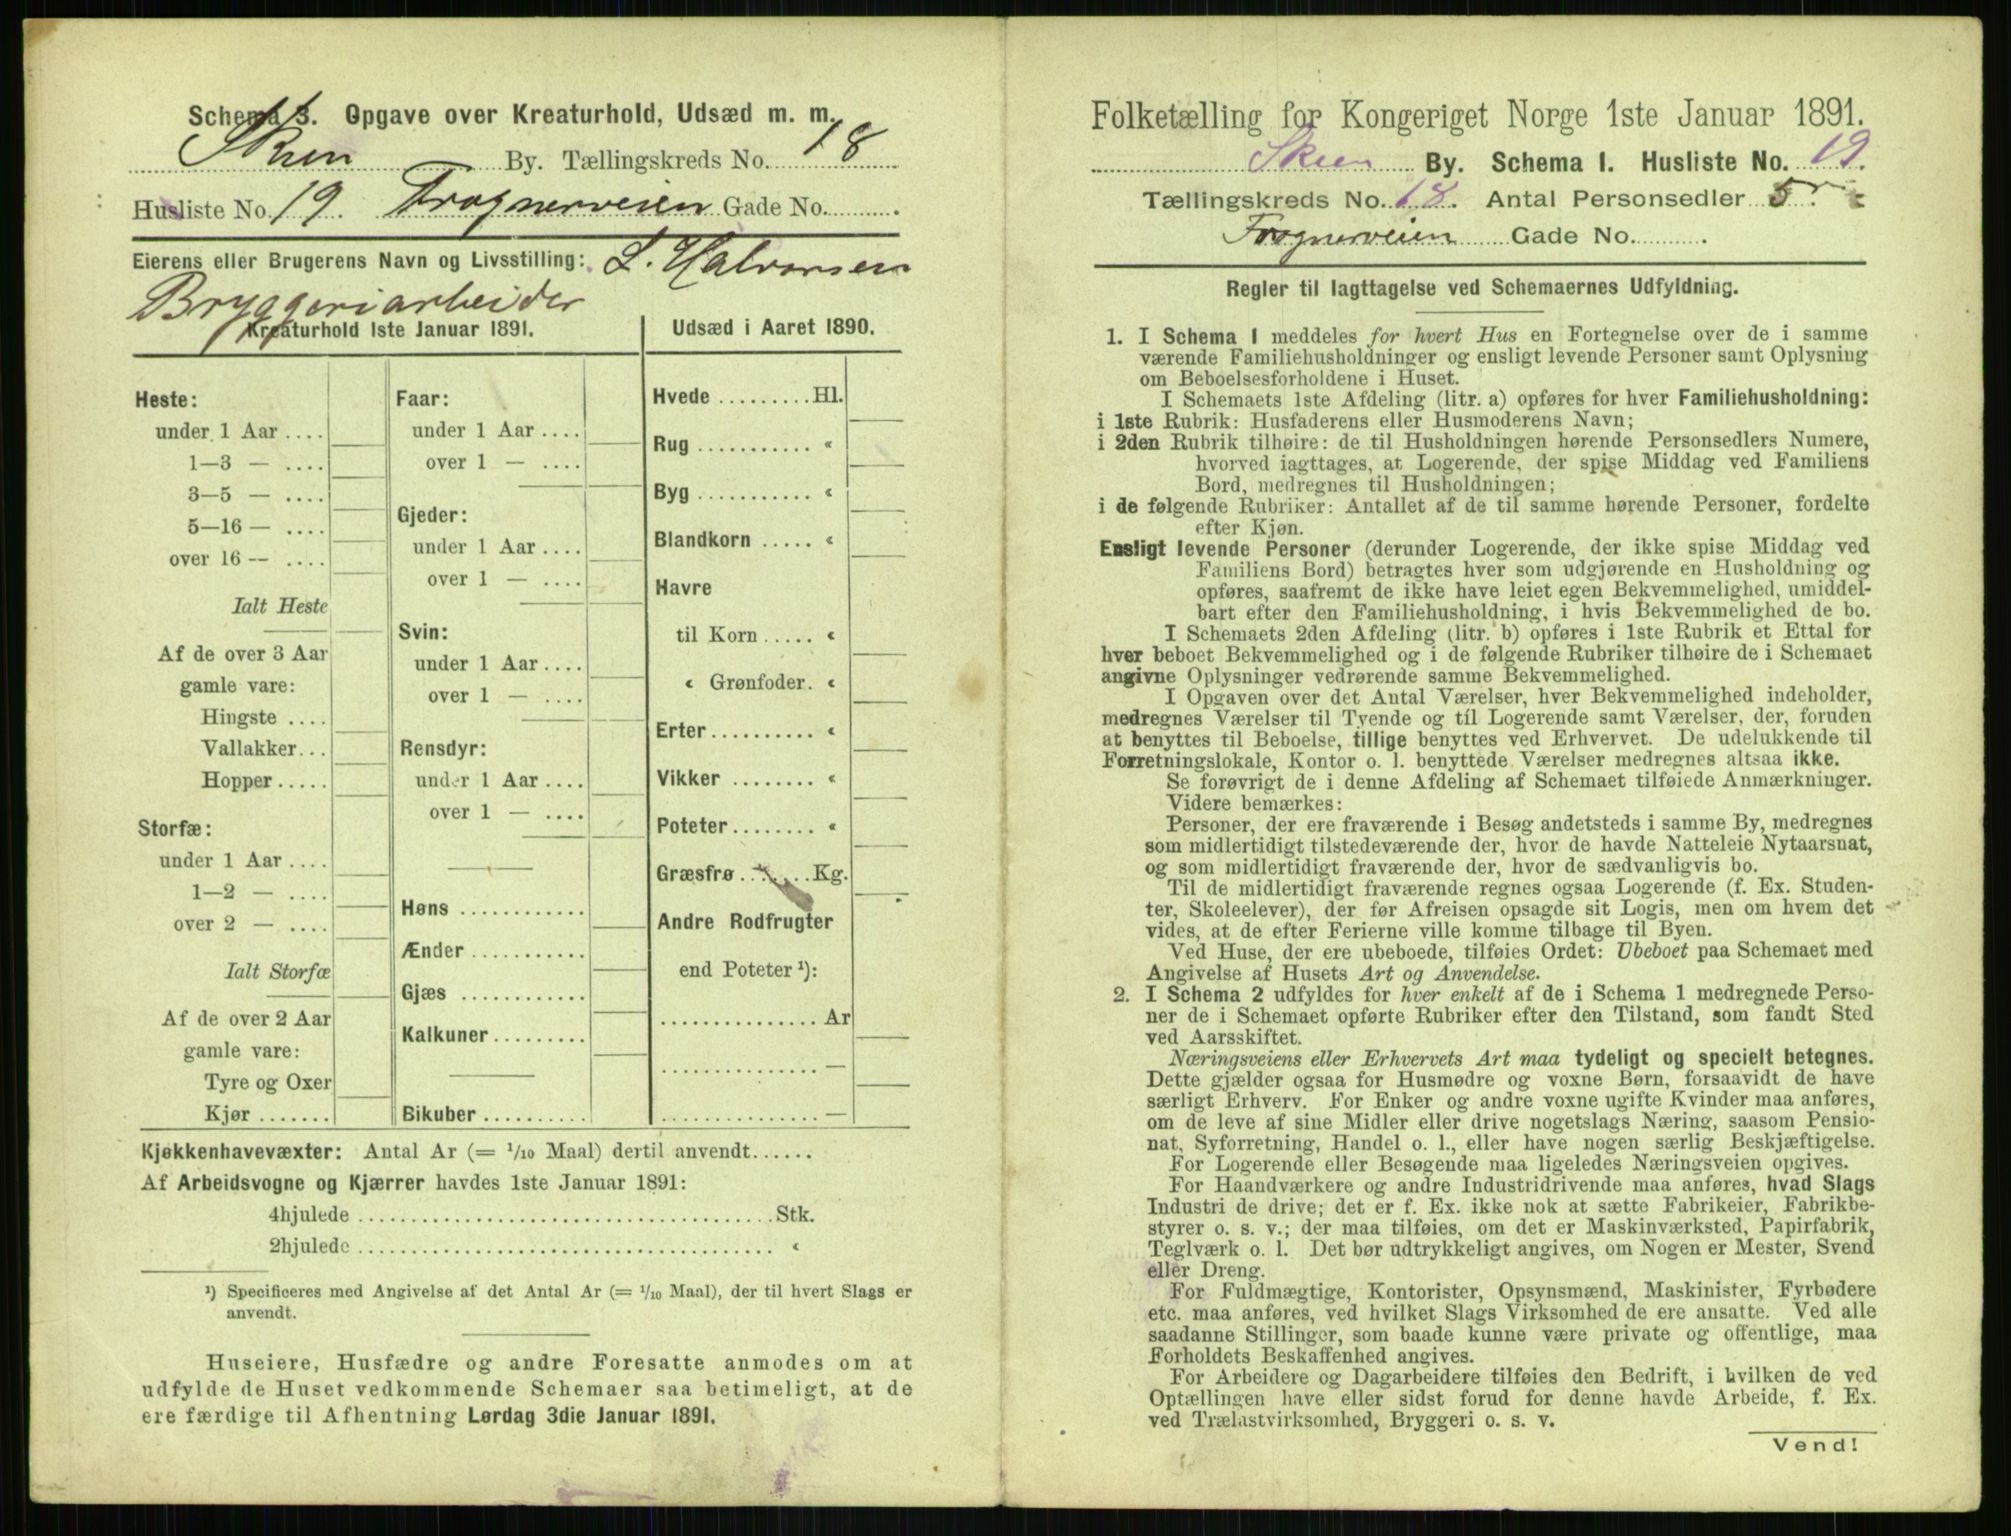 Schema 3. Opgave over Kreaturhold, Udsæd m. m.
Skien By. Tællingskreds No. 18
Husliste No. 19. Frognerveien Gade No. .
Eierens eller Brugerens Navn og Livsstilling: L. Halvorsen
Bryggeriarbeider
Kreaturhold 1ste Januar 1891.
Heste:
under 1 Aar ....
1—3 — ....
3—5 — ....
5—16 — ....
over 16 — ....
Ialt Heste
Af de over 3 Aar
gamle vare:
Hingste ....
Vallakker...
Hopper.....
Storfæ:
under 1 Aar ....
1—2 — ....
over 2 — ....
Ialt Storfæ
Af de over 2 Aar
gamle vare:
Tyre og Oxer
Kjør .......
Faar:
under 1 Aar ....
over 1 — ....
Gjeder:
under 1 Aar ....
over 1 — ....
Svin:
under 1 Aar ....
over 1 — ....
Rensdyr:
under 1 Aar ....
over 1 — ....
Høns ............
Ænder...........
Gjæs ............
Kalkuner.........
Bikuber..........
Udsæd i Aaret 1890.
Hvede .........Hl.
Rug ........... «
Byg ........... «
Blandkorn ..... «
Havre
til Korn ..... «
« Grønfoder. «
Erter.......... «
Vikker ........ «
Poteter........ «
Græsfrø........Kg.
Andre Rodfrugter
end Poteter ¹):
............... Ar
............... —
............... —
Kjøkkenhavevæxter: Antal Ar (= ¹/₁₀ Maal) dertil anvendt......
Af Arbeidsvogne og Kjærrer havdes 1ste Januar 1891:
4hjulede ........................................Stk.
2hjulede ........................................ «
¹) Specificeres med Angivelse af det Antal Ar (= ¹/₁₀ Maal), der til hvert Slags er
anvendt.
Huseiere, Husfædre og andre Foresatte anmodes om at
udfylde de Huset vedkommende Schemaer saa betimeligt, at de
ere færdige til Afhentning Lørdag 3die Januar 1891.
Folketælling for Kongeriget Norge 1ste Januar 1891.
Skien By. Schema 1. Husliste No. 19.
Tællingskreds No. 18. Antal Personsedler 5.
Frognerveien Gade No. .
Regler til Iagttagelse ved Schemaernes Udfyldning.
1. I Schema 1 meddeles for hvert Hus en Fortegnelse over de i samme
værende Familiehusholdninger og ensligt levende Personer samt Oplysning
om Beboelsesforholdene i Huset.
I Schemaets 1ste Afdeling (litr. a) opføres for hver Familiehusholdning:
i 1ste Rubrik: Husfaderens eller Husmoderens Navn;
i 2den Rubrik tilhøire: de til Husholdningen hørende Personsedlers Numere,
hvorved iagttages, at Logerende, der spise Middag ved Familiens
Bord, medregnes til Husholdningen;
i de følgende Rubriker: Antallet af de til samme hørende Personer, fordelte
efter Kjøn.
Ensligt levende Personer (derunder Logerende, der ikke spise Middag ved
Familiens Bord) betragtes hver som udgjørende en Husholdning og
opføres, saafremt de ikke have leiet egen Bekvemmelighed, umiddel-
bart efter den Familiehusholdning, i hvis Bekvemmelighed de bo.
I Schemaets 2den Afdeling (litr. b) opføres i 1ste Rubrik et Ettal for
hver beboet Bekvemmelighed og i de følgende Rubriker tilhøire de i Schemaet
angivne Oplysninger vedrørende samme Bekvemmelighed.
I Opgaven over det Antal Værelser, hver Bekvemmelighed indeholder,
medregnes Værelser til Tyende og til Logerende samt Værelser, der, foruden
at benyttes til Beboelse, tillige benyttes ved Erhvervet. De udelukkende til
Forretningslokale, Kontor o. l. benyttede Værelser medregnes altsaa ikke.
Se forøvrigt de i denne Afdeling af Schemaet tilføiede Anmærkninger.
Videre bemærkes:
Personer, der ere fraværende i Besøg andetsteds i samme By, medregnes
som midlertidigt tilstedeværende der, hvor de havde Natteleie Nytaarsnat,
og som midlertidigt fraværende der, hvor de sædvanligvis bo.
Til de midlertidigt fraværende regnes ogsaa Logerende (f. Ex. Studen-
ter, Skoleelever), der før Afreisen opsagde sit Logis, men om hvem det
vides, at de efter Ferierne ville komme tilbage til Byen.
Ved Huse, der ere ubeboede, tilføies Ordet: Ubeboet paa Schemaet med
Angivelse af Husets Art og Anvendelse.
2. I Schema 2 udfyldes for hver enkelt af de i Schema 1 medregnede Perso-
ner de i Schemaet opførte Rubriker efter den Tilstand, som fandt Sted
ved Aarsskiftet.
Næringsveiens eller Erhvervets Art maa tydeligt og specielt betegnes.
Dette gjælder ogsaa for Husmødre og voxne Børn, forsaavidt de have
særligt Erhverv. For Enker og andre voxne ugifte Kvinder maa anføres,
om de leve af sine Midler eller drive nogetslags Næring, saasom Pensio-
nat, Syforretning, Handel o. l., eller have nogen særlig Beskjæftigelse.
For Logerende eller Besøgende maa ligeledes Næringsveien opgives.
For Haandværkere og andre Industridrivende maa anføres, hvad Slags
Industri de drive; det er f. Ex. ikke nok at sætte Fabrikeier, Fabrikbe-
styrer o. s. v.; der maa tilføies, om det er Maskinværksted, Papirfabrik,
Teglværk o. l. Det bør udtrykkeligt angives, om Nogen er Mester, Svend
eller Dreng.
For Fuldmægtige, Kontorister, Opsynsmænd, Maskinister, Fyrbødere
etc. maa anføres, ved hvilket Slags Virksomhed de ere ansatte. Ved alle
saadanne Stillinger, som baade kunne være private og offentlige, maa
Forholdets Beskaffenhed angives.
For Arbeidere og Dagarbeidere tilføies den Bedrift, i hvilken de ved
Optællingen have eller sidst forud for denne havde Arbeide, f. Ex.
ved Trælastvirksomhed, Bryggeri o. s. v.
Vend!